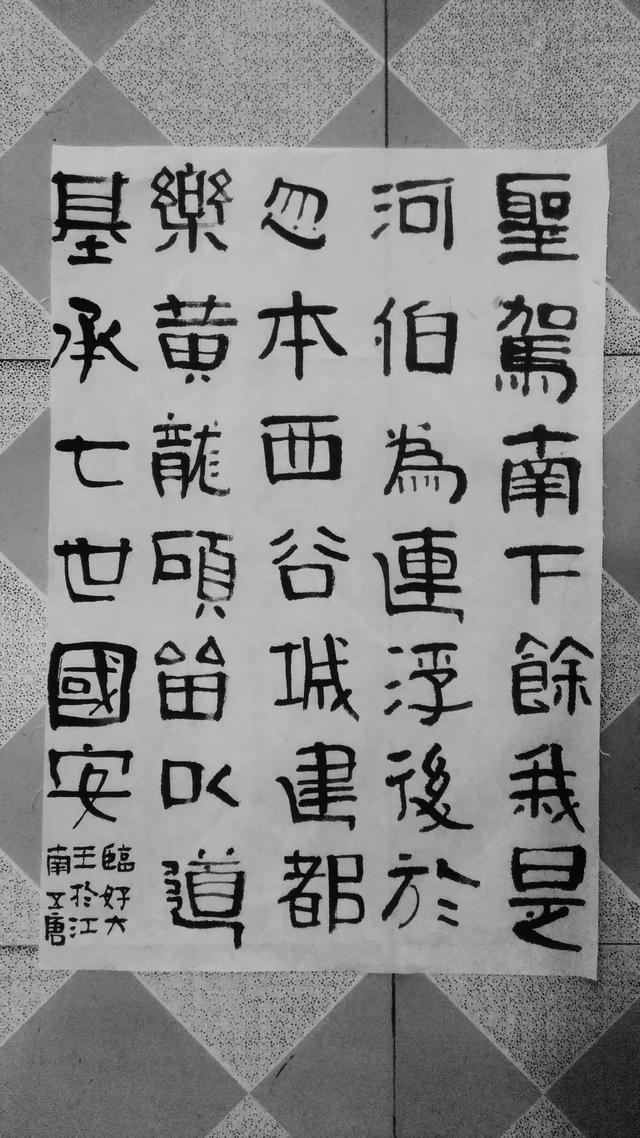 聖駕南下餘我是
河伯為連浮後於
忽本西谷城建都
樂黄龍碩留以道
基承七世國安
臨好大
王於江
南五唐